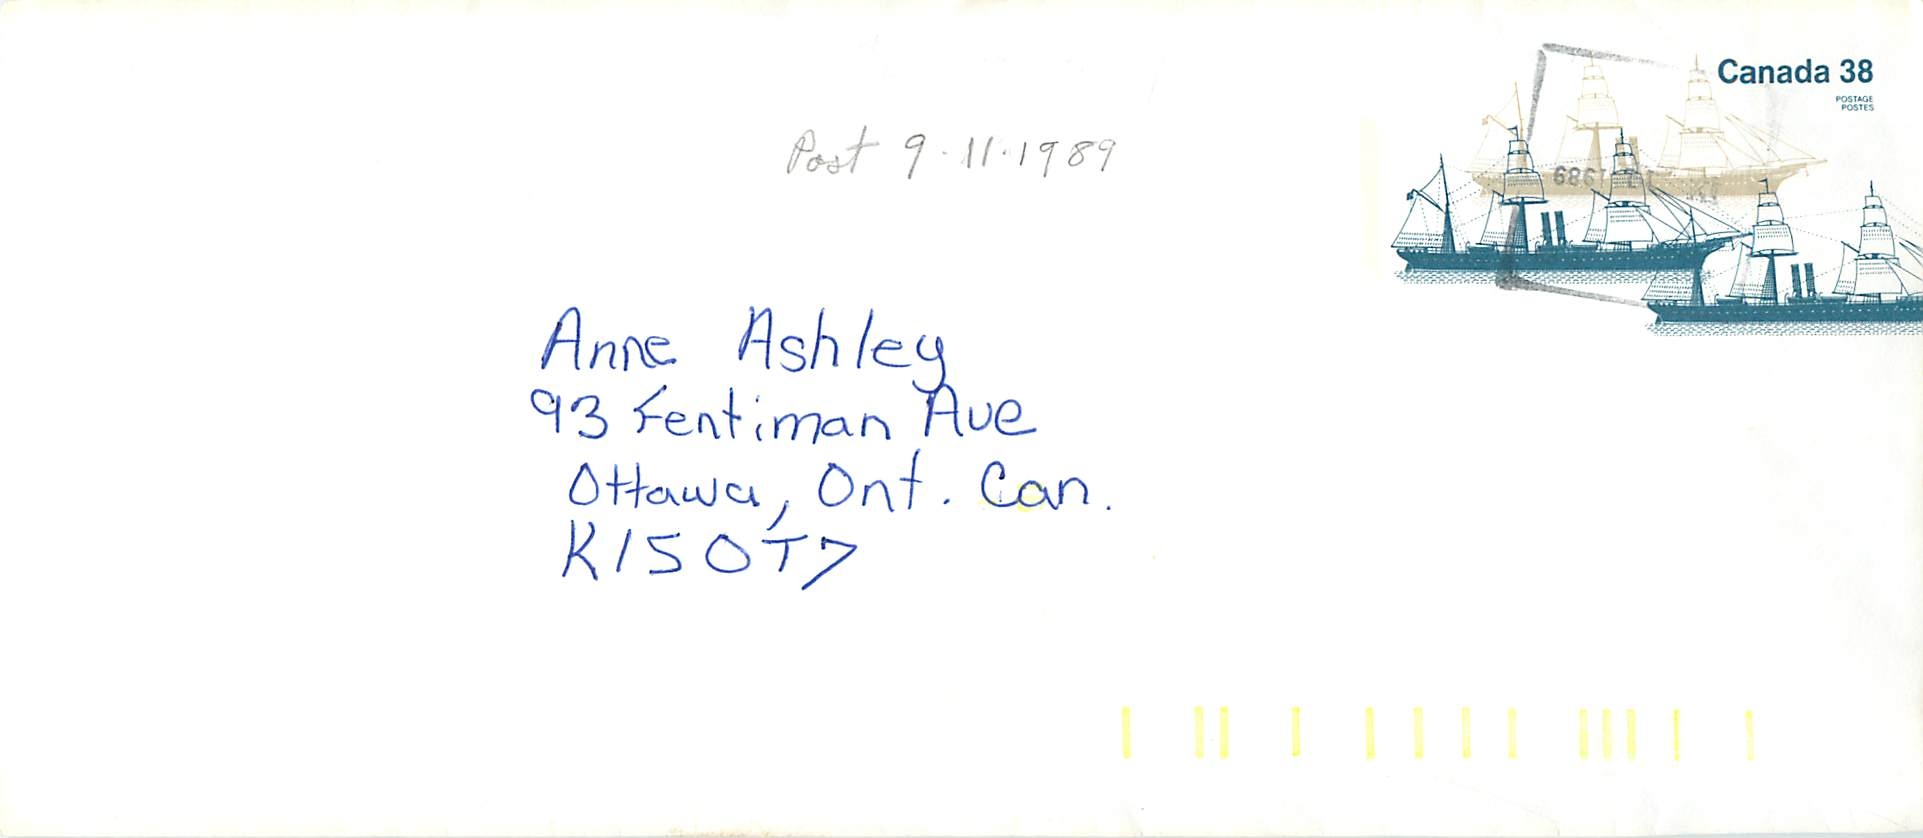 Canada 38
POSTAGE
POSTES
Post 9.11.1989
1989
Anne Ashley
93 Fentiman Ave
Ottawa, Ont. Can.
K1S 0T7